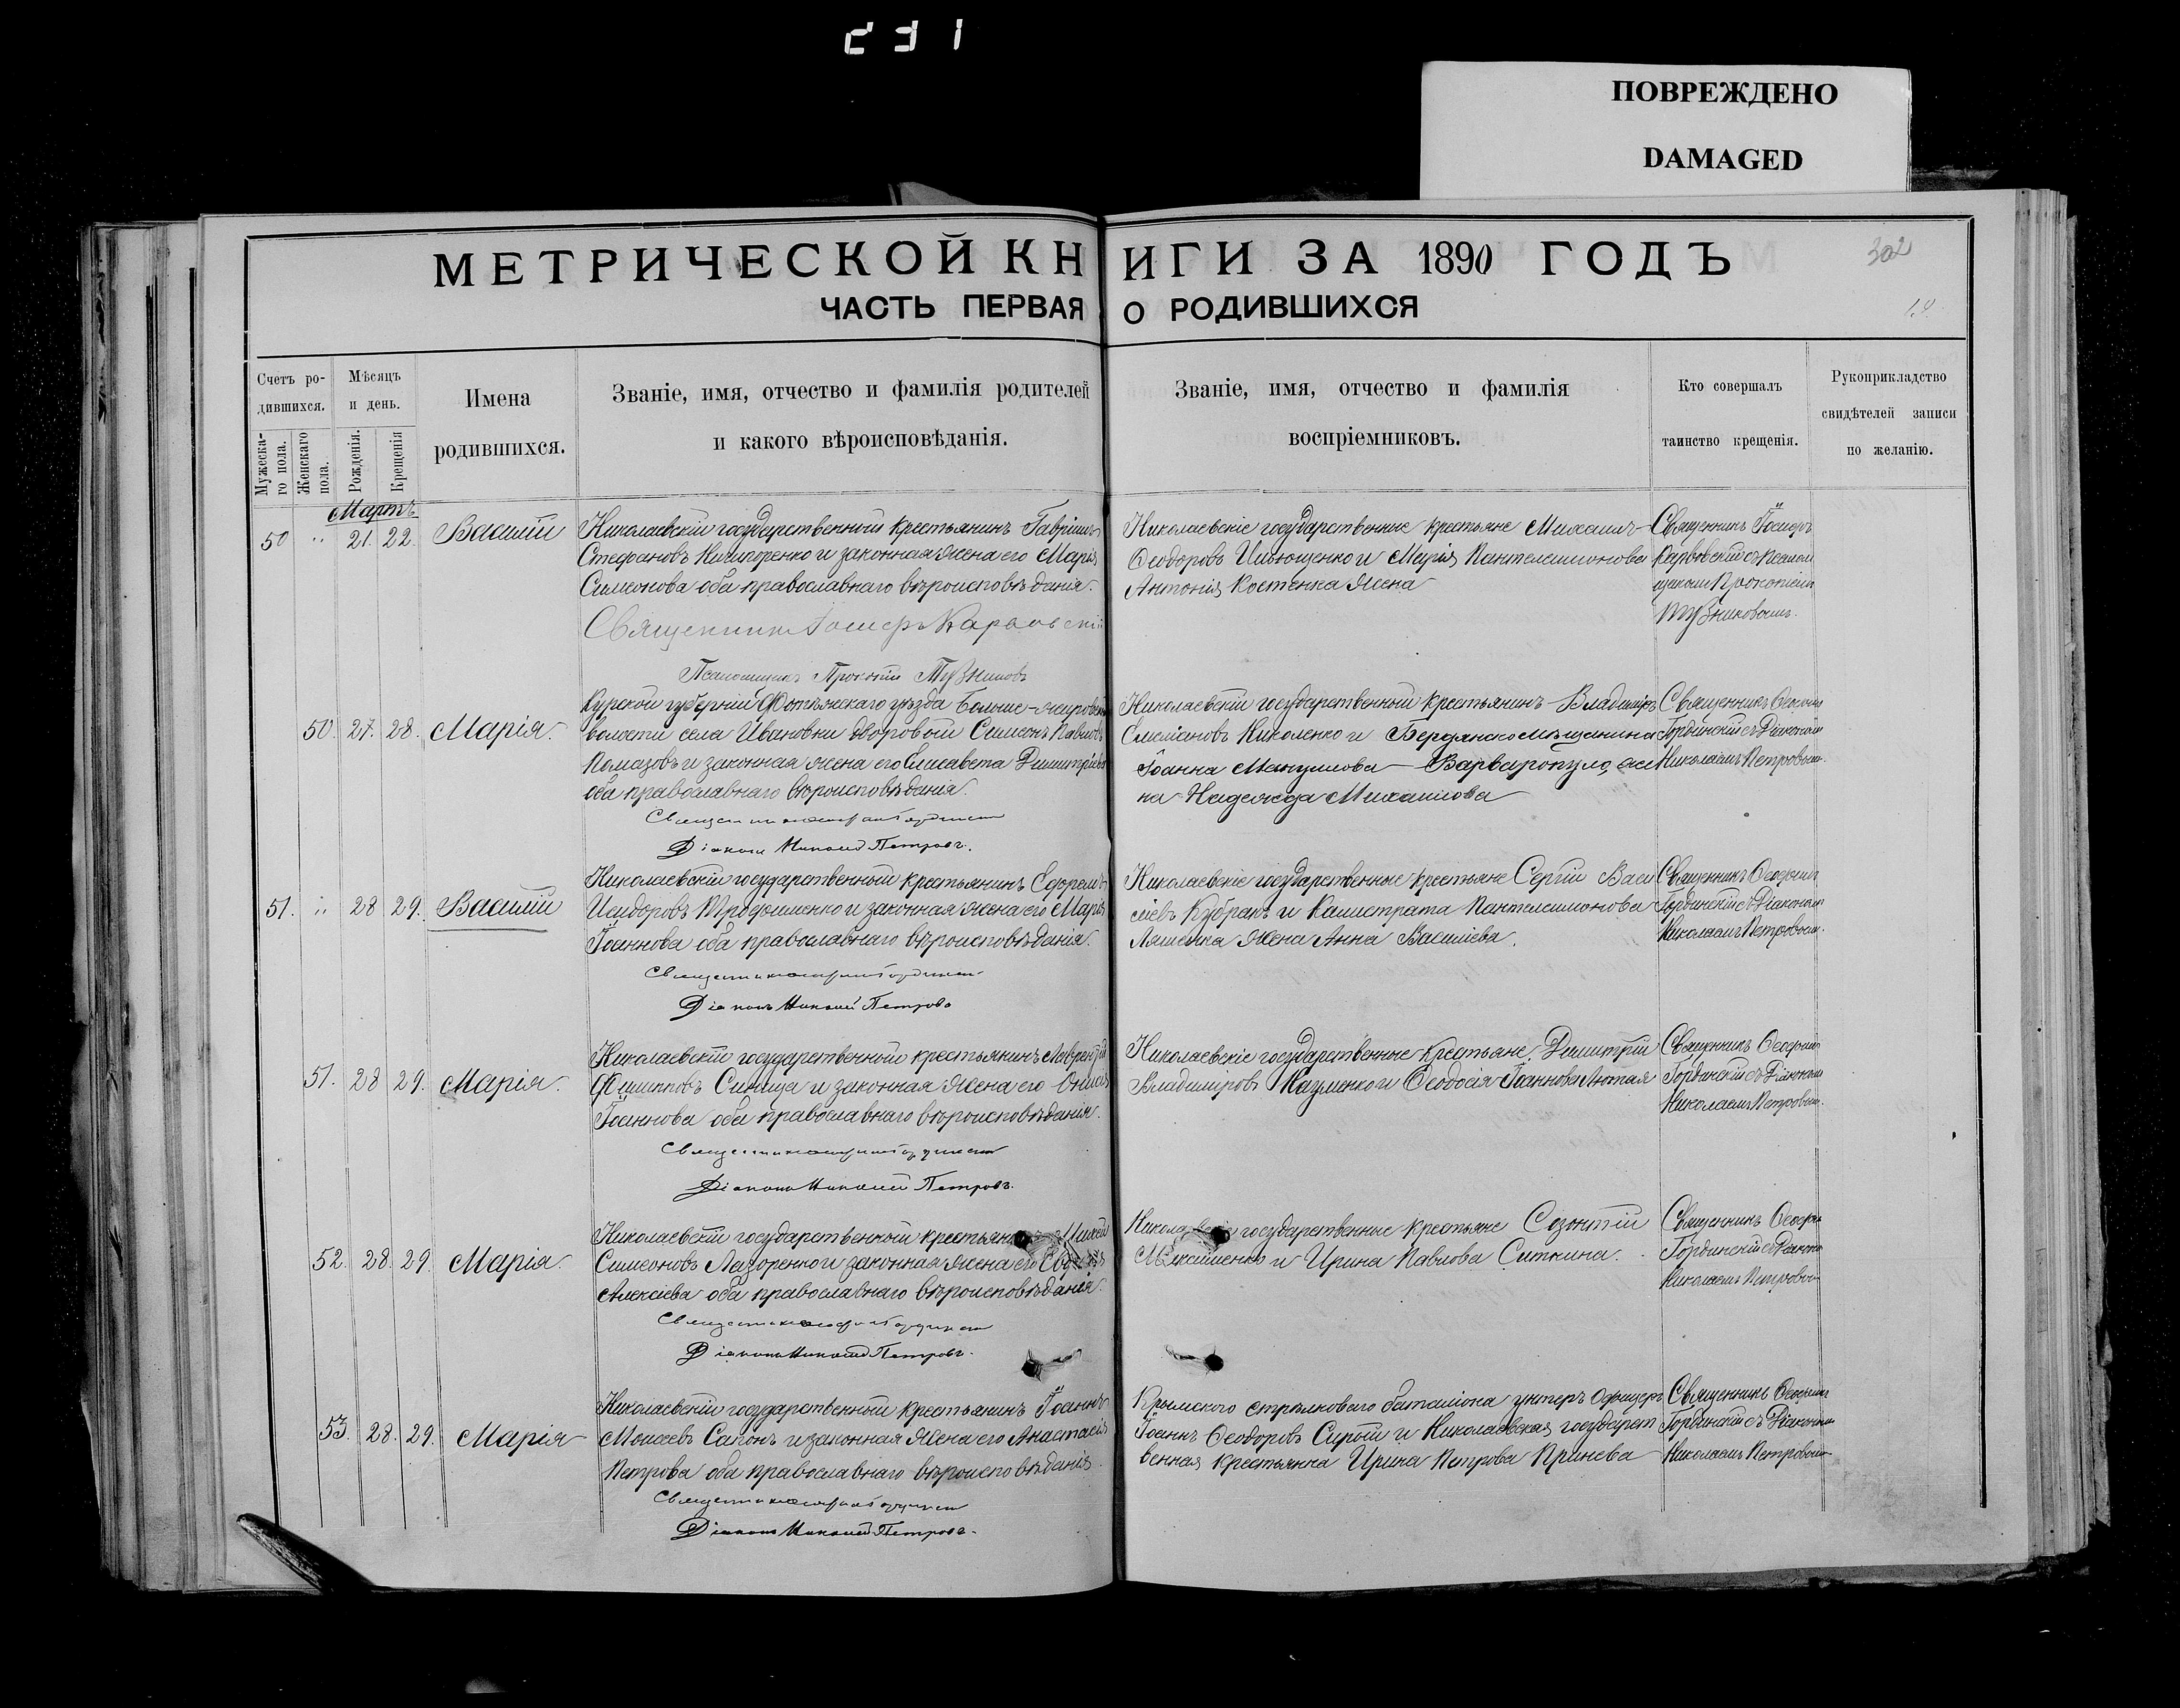 231
ПОВРЕЖДЕНО
DAMAGED
МЕТРИЧЕСКОЙ КНИГИ ЗА 1890 ГОДЪ
302
ЧАСТЬ ПЕРВАЯ О РОДИВШИХСЯ
Счетъ ро-
дившихся.
Мужеска-
го пола.
Женскаго
пола.
Мѣсяцъ
и день.
Рожденія.
Крещенія
Имена
родившихся.
Званіе, имя, отчество и фамилія родителей
и какого вѣроисповѣданія.
Званіе, имя, отчество и фамилія
воспріемниковъ.
Кто совершалъ
таинство крещенія.
Рукоприкладство
свидѣтелей записи
по желанію.
Мартъ
50 " 21. 22. Василій
Николаевскій государственный крестьянинъ Гавріилъ
Стефановъ и законная жена его Марія
Симеонова оба православнаго вѣроисповѣданія.
Священникъ Іосифъ Карвовскій
Псаломщикъ Прокопій
Николаевскіе государственные крестьяне Михаилъ
Ѳеодоровъ и Марія Пантелеимонова
Антонія Костенка жена
Священникъ Іосифъ
Карвовскій съ псалом
щикомъ Прокопіемъ
50. 27. 28. Марія.
Курской губерніи уѣзда
волости села Ивановки дворовой Симеонъ Павловъ
Помазовъ и законная жена его Елисавета Димитріева
оба православнаго вѣроисповѣданія.
Діаконъ Николай Петровъ.
Николаевскій государственный крестьянинъ Владиміръ
Николенко и Бердянскаго мѣщанина
Іоанна Мануилова Варваропуло же
на Надежда Михаилова
Священникъ
Гординскій съ Діакономъ
Николаемъ Петровымъ.
51. " 28 29. Василій
Николаевскій государственный крестьянинъ Ефремъ
Исидоровъ Трофименко и законная жена его Марія
Іоаннова оба православнаго вѣроисповѣданія.
Діаконъ Николай Петровъ
Николаевскіе государственные крестьяне Сергій Васи
ліевъ Кубракъ и Калистрата Пантелеимонова
Ляшенка жена Анна Василіева.
Священникъ
Гординскій съ Діакономъ
Николаемъ Петровымъ.
51. 28 29. Марія.
Николаевскій государственный крестьянинъ Лаврентій
Филипповъ Синица и законная жена его
Іоаннова оба православнаго вѣроисповѣданія.
Діаконъ Николай Петровъ.
Николаевскіе государственные крестьяне Димитрій
Владиміровъ и Ѳеодосія Іоаннова Лютая
Священникъ
Гординскій съ Діакономъ
Николаемъ Петровымъ.
52. 28. 29. Марія.
Николаевскій государственный
Симеоновъ Лазоренко и законная жена его
Алексіева оба православнаго вѣроисповѣданія.
Діаконъ Николай Петровъ.
Николаевскіе государственные крестьяне Созонтій
Максименко и Ирина Павлова Ситкина.
Священникъ
Гординскій съ Діакономъ
Николаемъ Петровымъ
53. 28. 29. Марія
Николаевскій государственный крестьянинъ Іоаннъ
Моисеевъ Сапонъ и законная жена его Анастасія
Петрова оба православнаго вѣроисповѣданія.
Діаконъ Николай Петровъ.
Крымскаго стрѣлковаго баталіона унтеръ офицеръ
Іоаннъ Ѳеодоровъ Сирый и Николаевская государст
венная крестьянка Ирина Петрова Принева
Священникъ
Гординскій съ Діакономъ
Николаемъ Петровымъ